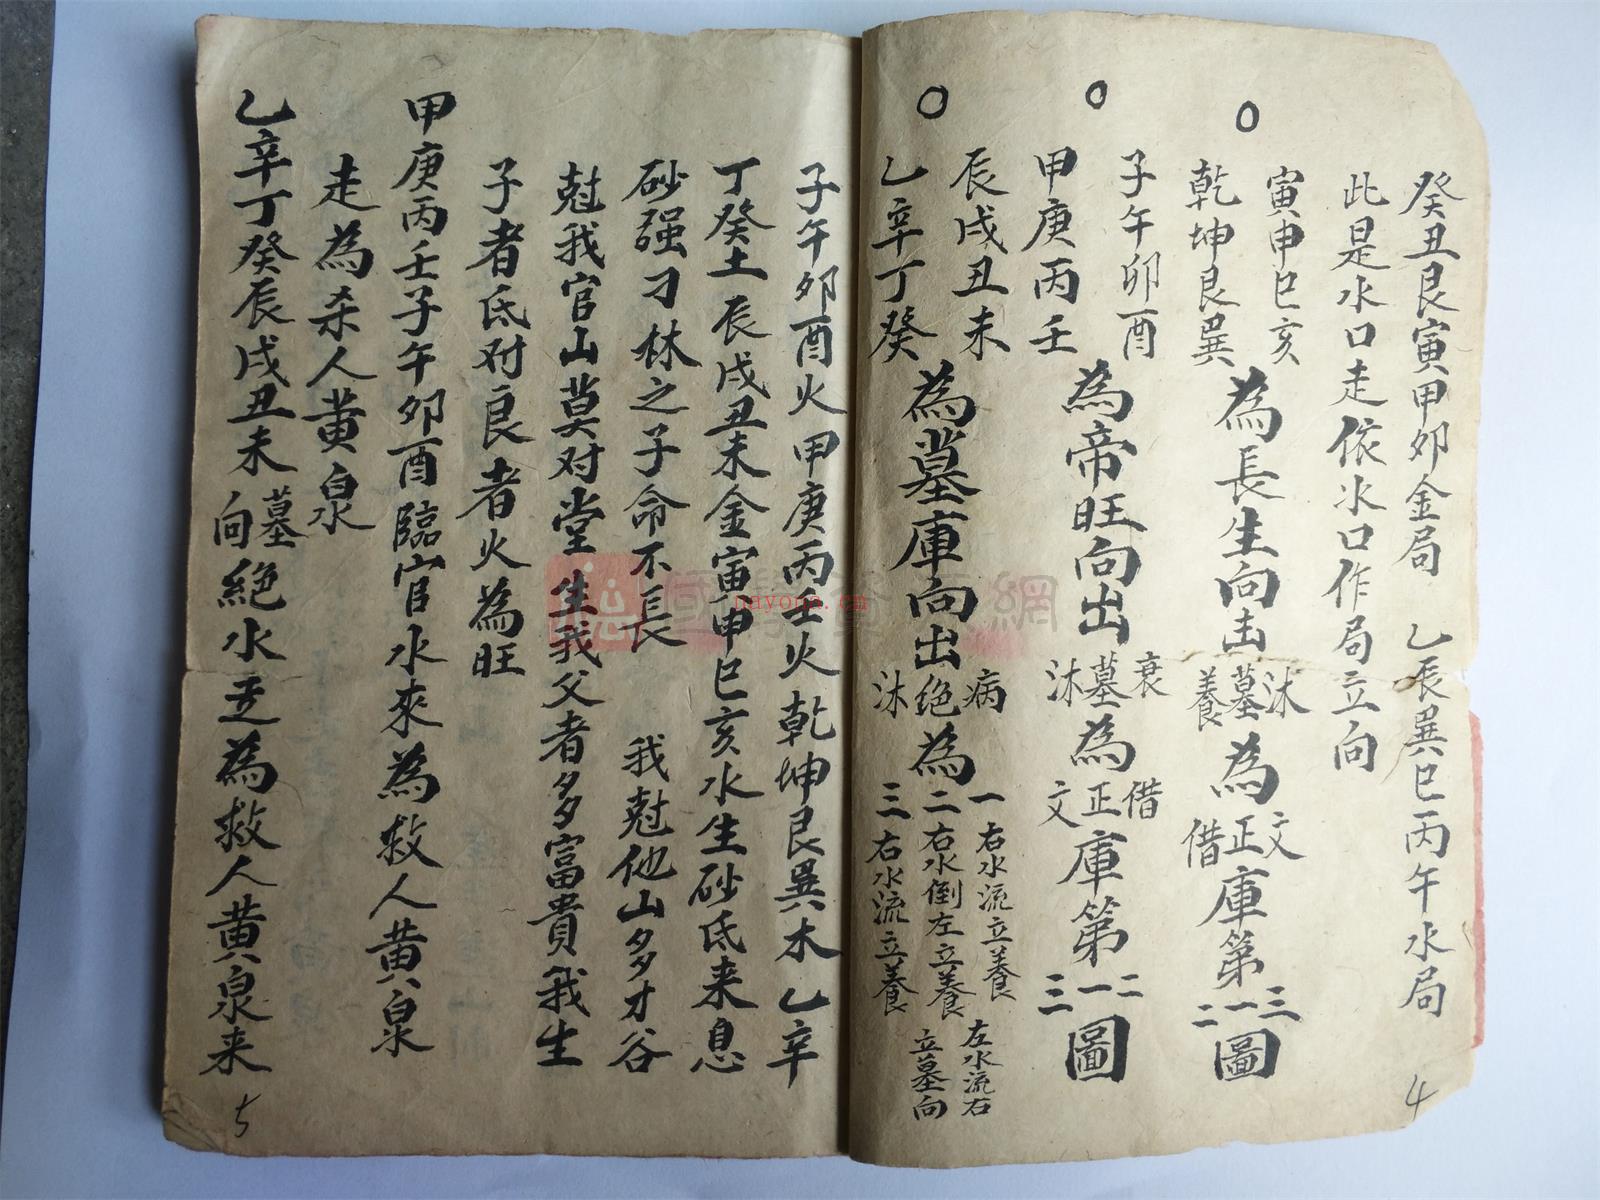 癸丑艮寅甲卯金局 乙辰巽巳丙午水局
此是水口走依水口作局立向
寅申巳亥
乾坤艮巽
為長生向出
沐
墓
養
為
文
正
借
庫第
三
一
二
圖
子午卯酉
甲庚丙壬
為帝旺向出
衰
墓
沐
為
借
正
文
庫第
二
一
三
圖
辰戌丑未
乙辛丁癸
為墓庫向出
病
绝
沐
為
一右水流立養
二右水倒左立養
三右水流立養
左水流右
立墓向
4
子午卯酉火甲庚丙壬火乾坤艮巽木乙辛
丁癸土辰戌丑未金寅申巳亥水生砂低来息
砂强刁林之子命不長 我尅他山多才谷
尅我官山莫对堂生我父者多富貴我生
子者低对良者火為旺
甲庚丙壬子午卯酉臨官水來為救人黄泉
走為杀人黄泉
乙辛丁癸辰戌丑未墓向絕水走為救人黄泉来
5
國學資源網
nayona.cn